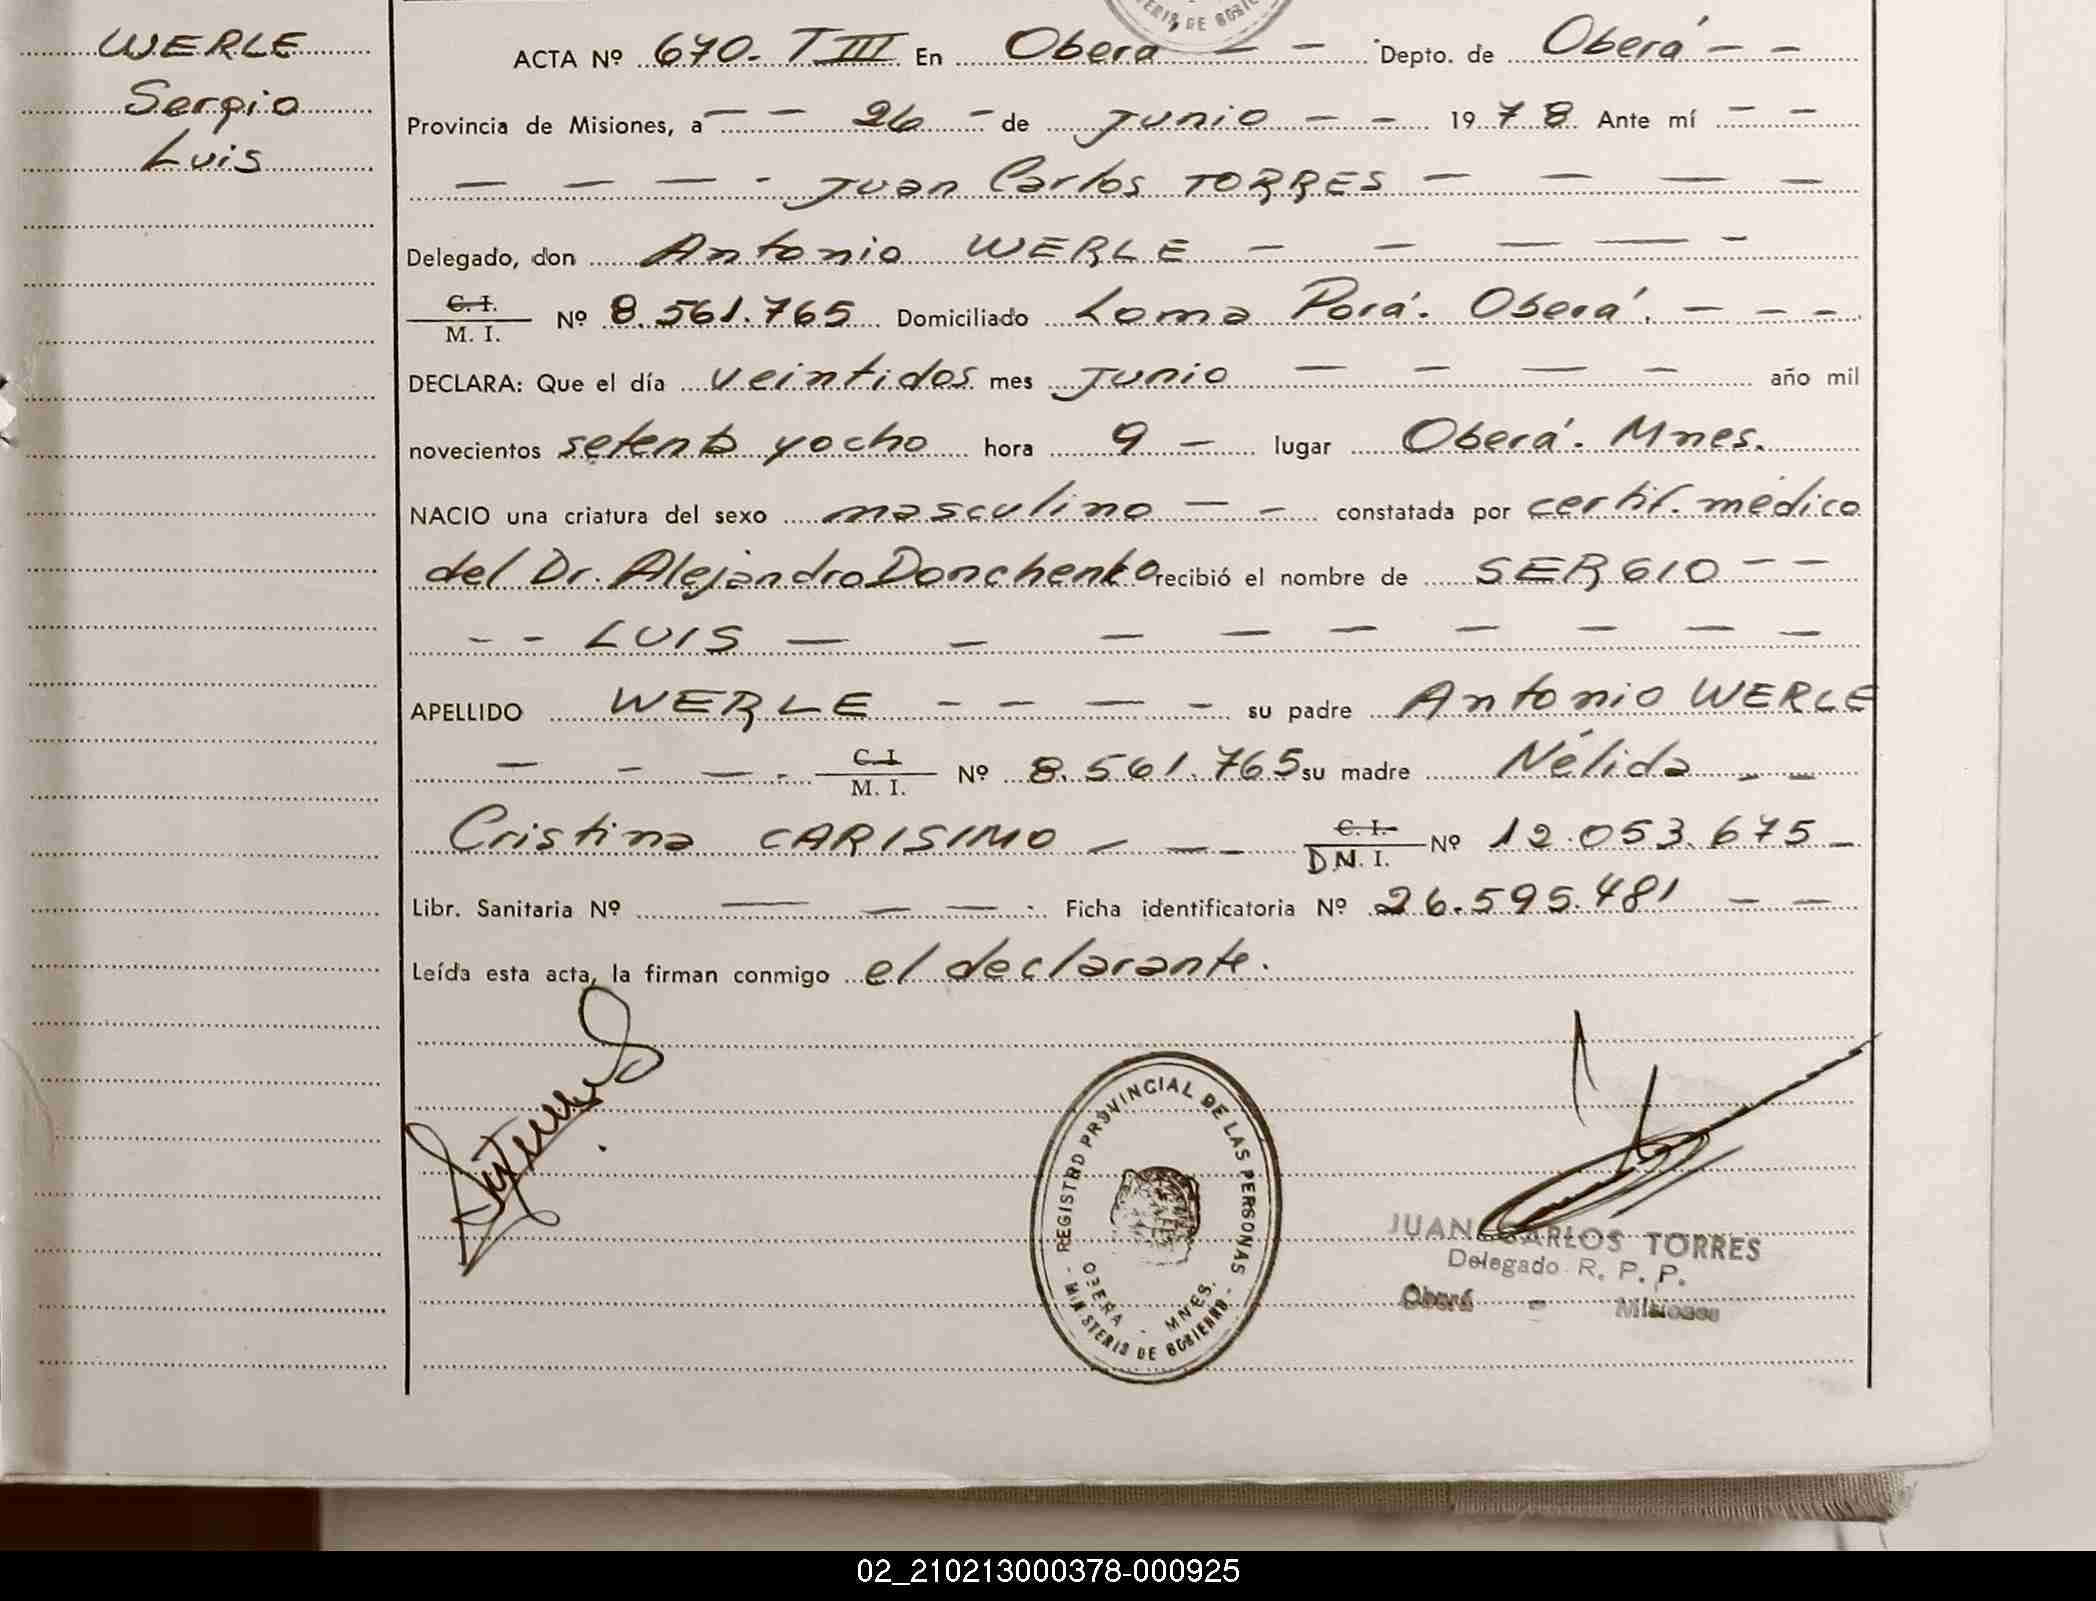 WERLE
Sergio
Luis
ACTA Nº 670. T III En Oberá Depto. de Oberá
Provincia de Misiones, a 26 de junio 1978 Ante mí
Juan Carlos TORRES
Delegado, don Antonio WERLE
C. I.
M. I. Nº 8.561.765 Domiciliado Loma Porá. Oberá.
DECLARA: Que el día veintidos mes junio año mil
novecientos setenta y ocho hora 9 lugar Oberá. Mnes.
NACIO una criatura del sexo masculino constatada por certif. médico
del Dr. Alejandro Donchenko recibió el nombre de SERGIO
LUIS
APELLIDO WERLE su padre Antonio WERLE
C. I.
M. I. Nº 8.561.765 su madre Nélida
Cristina CARISIMO C. I.
D.N. I. Nº 12.053.675
Libr. Sanitaria Nº Ficha identificatoria Nº 26.595.481
Leída esta acta, la firman conmigo el declarante.
REGISTRO PROVINCIAL DE LAS PERSONAS
OBERÁ - MNES.
MINISTERIO DE GOBIERNO
JUAN CARLOS TORRES
Delegado R. P. P.
Oberá - Misiones
02_210213000378-000925